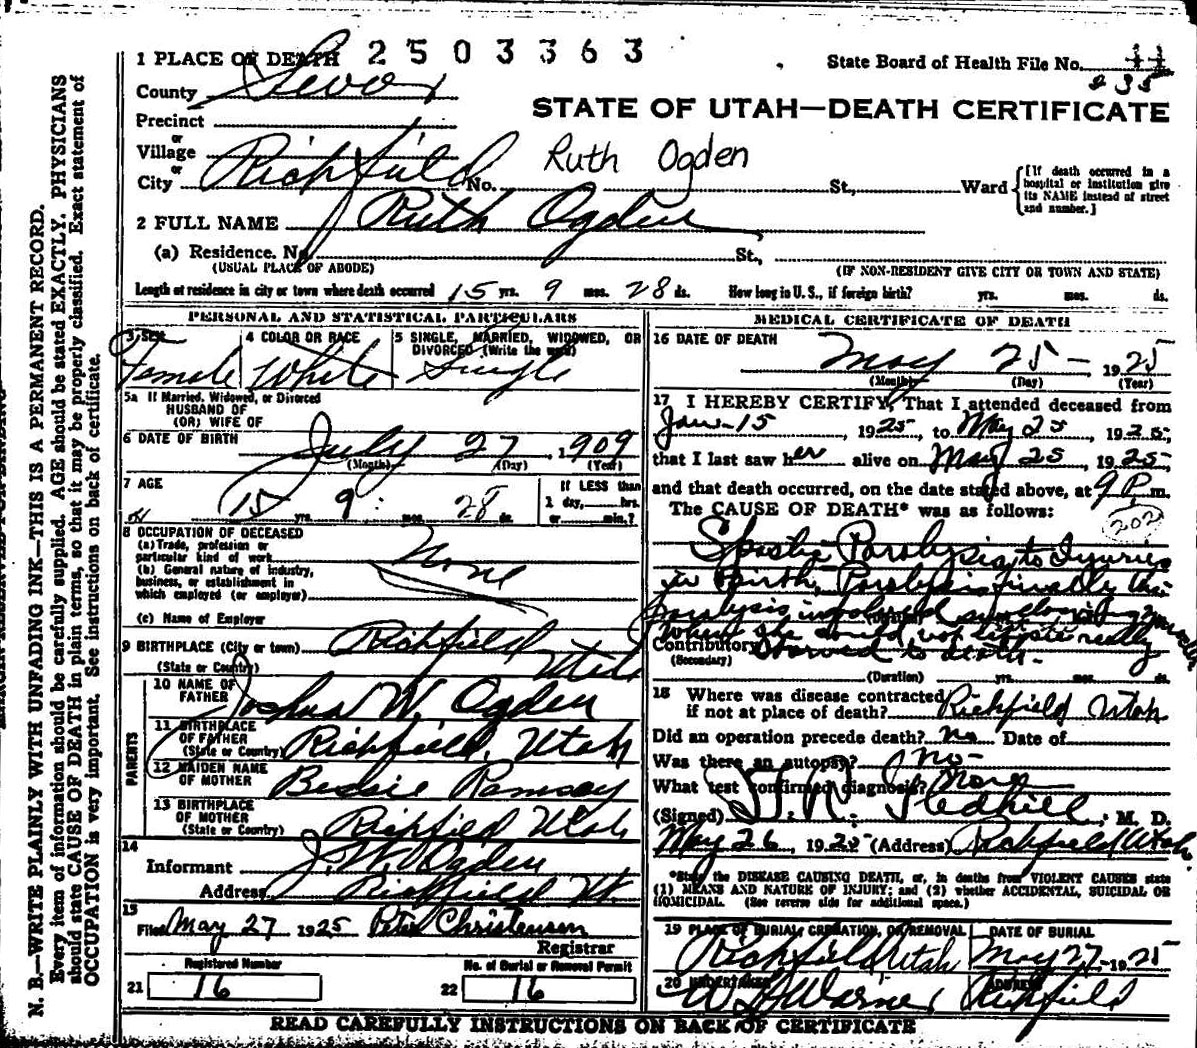 1 PLACE OF DEATH 2503363
State Board of Health File No. 11
235
County Sevier
STATE OF UTAH—DEATH CERTIFICATE
Precinct
or
Village
or
City Richfield No. St., Ward
Ruth Ogden
[If death occurred in a
hospital or institution give
its NAME instead of street
and number.]
2 FULL NAME Ruth Ogden
(a) Residence. No. St.,
(USUAL PLACE OF ABODE) (IF NON-RESIDENT GIVE CITY OR TOWN AND STATE)
Length of residence in city or town where death occurred 15 yrs. 9 mos. 28 ds. How long in U. S., if foreign birth? yrs. mos. ds.
PERSONAL AND STATISTICAL PARTICULARS
3 SEX 4 COLOR OR RACE 5 SINGLE, MARRIED, WIDOWED, OR
DIVORCED (Write the word)
Female White Single
5a If Married, Widowed, or Divorced
HUSBAND OF
(OR) WIFE OF
6 DATE OF BIRTH July 27, 1909
(Month) (Day) (Year)
7 AGE 15 yrs. 9 mos. 28 ds.
If LESS than
1 day, hrs.
or min.?
8 OCCUPATION OF DECEASED
(a) Trade, profession or
particular kind of work None
(b) General nature of industry,
business, or establishment in
which employed (or employer)
(c) Name of Employer
9 BIRTHPLACE (City or town) Richfield
(State or Country) Utah
PARENTS
10 NAME OF
FATHER Joshua W. Ogden
11 BIRTHPLACE
OF FATHER
(State or Country) Richfield, Utah
12 MAIDEN NAME
OF MOTHER Bessie Ramsay
13 BIRTHPLACE
OF MOTHER
(State or Country) Richfield Utah
14
Informant J. W. Ogden
Address Richfield Ut.
15
Filed May 27 1925 Peter Christensen
Registrar
Registered Number No. of Burial or Removal Permit
21 16 22 16
MEDICAL CERTIFICATE OF DEATH
16 DATE OF DEATH
May 25 - 1925
(Month) (Day) (Year)
17 I HEREBY CERTIFY, That I attended deceased from
Jan-15, 1925, to May 25, 1925,
that I last saw her alive on May 25, 1925,
and that death occurred, on the date stated above, at 9 P. m.
The CAUSE OF DEATH* was as follows:
202
Spastic Paralysis to Injuries
in Birth, Paralysis finally the
paralysis involved swallowing
(Duration)
when she could not eat really
Contributory starved to death-
(Secondary)
(Duration) yrs. mos. ds.
18 Where was disease contracted
if not at place of death? Richfield Utah
Did an operation precede death? No Date of
Was there an autopsy? No-
What test confirmed diagnosis? None
(Signed) Ledhill, M. D.
May 26 1925 (Address) Richfield Utah
*State the DISEASE CAUSING DEATH, or, in deaths from VIOLENT CAUSES state
(1) MEANS AND NATURE OF INJURY; and (2) whether ACCIDENTAL, SUICIDAL OR
HOMICIDAL. (See reverse side for additional space.)
19 PLACE OF BURIAL, CREMATION, OR REMOVAL DATE OF BURIAL
Richfield Utah May 27-1925
20 UNDERTAKER ADDRESS
Warner Richfield
READ CAREFULLY INSTRUCTIONS ON BACK OF CERTIFICATE
N. B.—WRITE PLAINLY WITH UNFADING INK—THIS IS A PERMANENT RECORD.
Every item of information should be carefully supplied. AGE should be stated EXACTLY. PHYSICIANS
should state CAUSE OF DEATH in plain terms, so that it may be properly classified. Exact statement of
OCCUPATION is very important. See instructions on back of certificate.